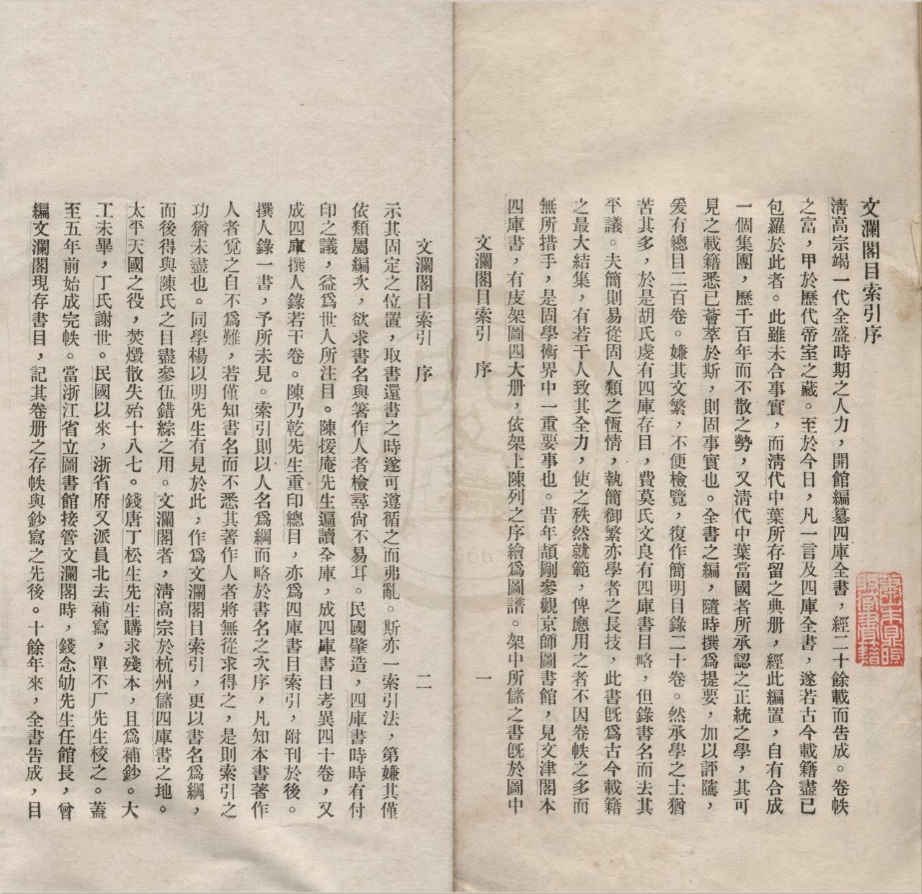 文瀾閣目索引序
淸高宗竭一代全盛時期之人力，開館編纂四庫全書，經二十餘載而告成。卷帙
之富，甲於歷代帝室之藏。至於今日，凡一言及四庫全書，遂若古今載籍盡已
包羅於此者。此雖未合事實，而淸代中葉所存留之典册，經此編置，自有合成
一個集團，歷千百年而不散之勢，又淸代中葉當國者所承認之正統之學，其可
見之載籍悉已薈萃於斯，則固事實也。全書之編，隨時撰爲提要，加以評隲，
爰有總目二百卷。嫌其文繁，不便檢覽，復作簡明目錄二十卷。然承學之士猶
苦其多，於是胡氏虔有四庫存目，費莫氏文良有四庫書目略，但錄書名而去其
平議。夫簡則易從固人類之恆情，執簡御繁亦學者之長技，此書旣爲古今載籍
之最大結集，有若干人致其全力，使之秩然就範，俾應用之者不因卷帙之多而
無所措手，是固學術界中一重要事也。昔年頡剛參觀京師圖書館，見文津閣本
四庫書，有庋架圖四大册，依架上陳列之序繪爲圖譜。架中所儲之書旣於圖中
文瀾閣目索引　序　一
文瀾閣目索引　序　二
示其固定之位置，取書還書之時遂可遵循之而弗亂。斯亦一索引法，第嫌其僅
依類屬編次，欲求書名與箸作人者檢尋尙不易耳。民國肇造，四庫書時時有付
印之議，益爲世人所注目。陳援庵先生遍讀全庫，成四庫書目考異四十卷，又
成四庫撰人錄若干卷。陳乃乾先生重印總目，亦爲四庫書目索引，附刊於後。
撰人錄一書，予所未見。索引則以人名爲綱而略於書名之次序，凡知本書著作
人者覓之自不爲難，若僅知書名而不悉其著作人者將無從求得之，是則索引之
功猶未盡也。同學楊以明先生有見於此，作爲文瀾閣目索引，更以書名爲綱，
而後得與陳氏之目盡參伍錯綜之用。文瀾閣者，淸高宗於杭州儲四庫書之地。
太平天國之役，焚燬散失殆十八七。錢唐丁松生先生購求殘本，且爲補鈔。大
工未畢，丁氏謝世。民國以來，浙省府又派員北去補寫，單不厂先生校之。蓋
至五年前始成完帙。當浙江省立圖書館接管文瀾閣時，錢念劬先生任館長，曾
編文瀾閣現存書目，記其卷册之存帙與鈔寫之先後。十餘年來，全書告成，目